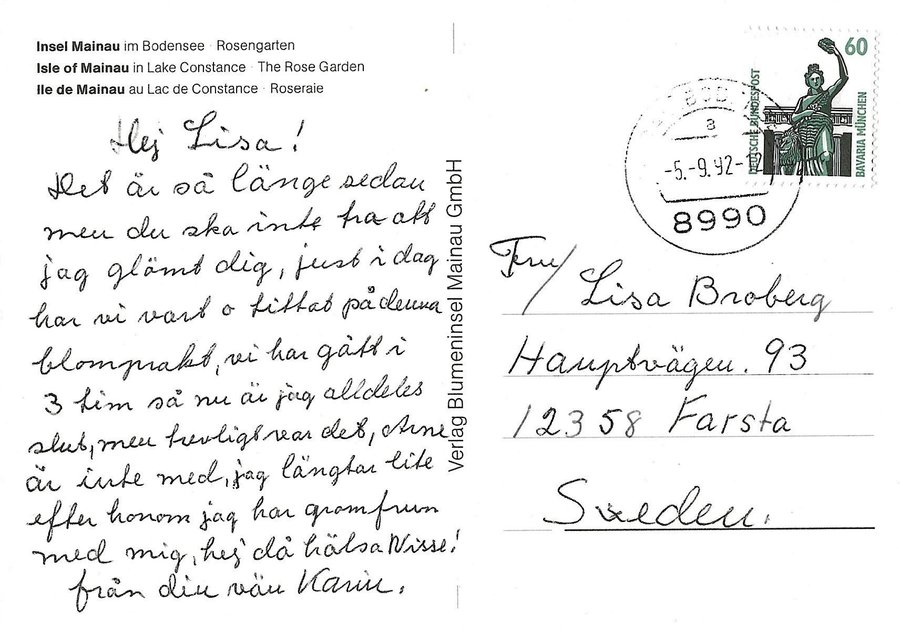 Insel Mainau im Bodensee · Rosengarten
Isle of Mainau in Lake Constance · The Rose Garden
Ile de Mainau au Lac de Constance · Roseraie
Hej Lisa!
Det är så länge sedan
men du ska inte tro att
jag glömt dig, just i dag
har vi vart o tittat på denna
blomprakt, vi har gått i
3 tim så nu är jag alldeles
slut, men trevligt var det, Arne
är inte med, jag längtar lite
efter honom jag har gromfrun
med mig, hej då hälsa Nisse!
från din vän Karin.
Verlag Blumeninsel Mainau GmbH
60
DEUTSCHE BUNDESPOST
BAVARIA MÜNCHEN
a
-5.-9.92-12
8990
Fru/ Lisa Broberg
Hauptvägen. 93
12358 Farsta
Sweden.